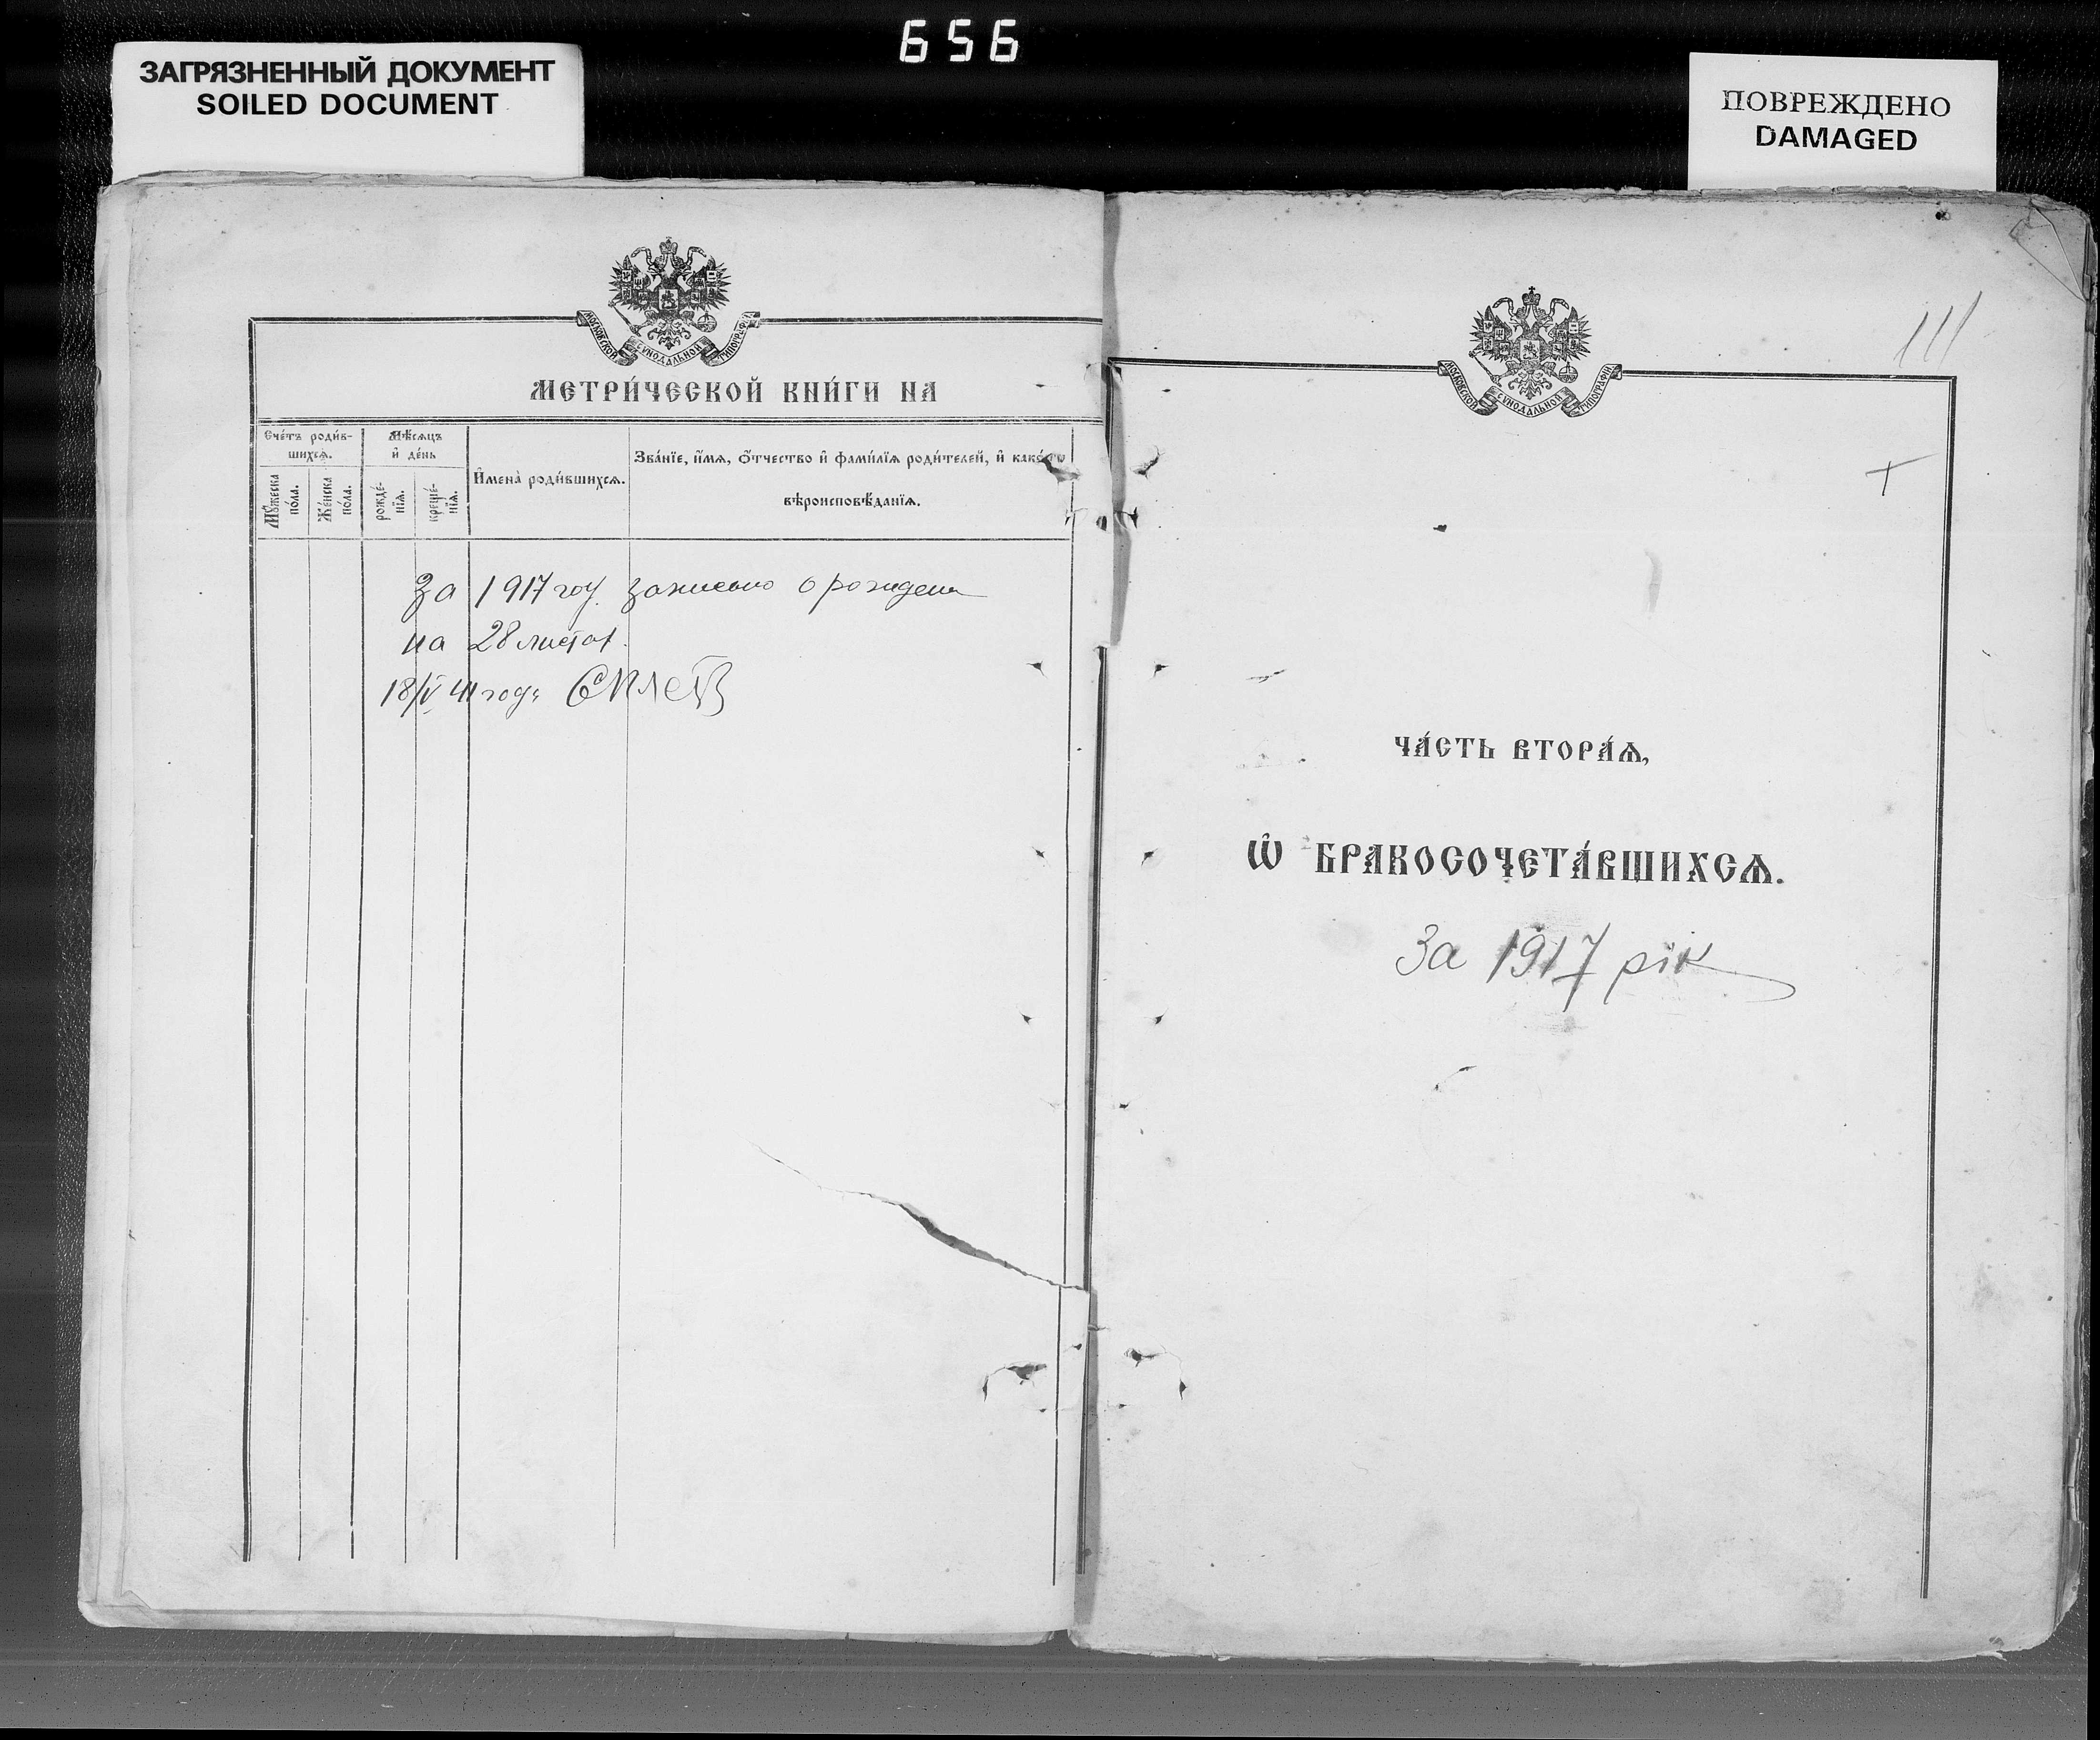 656
ЗАГРЯЗНЕННЫЙ ДОКУМЕНТ
SOILED DOCUMENT
ПОВРЕЖДЕНО
DAMAGED
МОСКОВСКОЙ СѴНОДАЛЬНОЙ ТИПОГРАФІИ
МЕТРИ́ЧЕСКОЙ КНИ́ГИ НА
Сче́тъ роди́в-
шихсѧ.
Мꙋ́жеска
по́ла.
Же́нска
по́ла.
Мѣ́сѧцъ
и҆ де́нь
рожде́-
нїѧ.
креще́-
нїѧ.
И҆мена̀ роди́вшихсѧ.
Зва́нїе, и҆́мѧ, ѻ҆́тчество и҆ фами́лїѧ роди́телей, и҆ како́гѡ
вѣроисповѣ́данїѧ.
За 1917 год записано о рожден
на 28 листах.
18/V 41 года
111
МОСКОВСКОЙ СѴНОДАЛЬНОЙ ТИПОГРАФІИ
ЧА́СТЬ ВТОРА́Ѧ,
Ѡ҆ БРАКОСОЧЕТА́ВШИХСѦ.
За 1917 рік